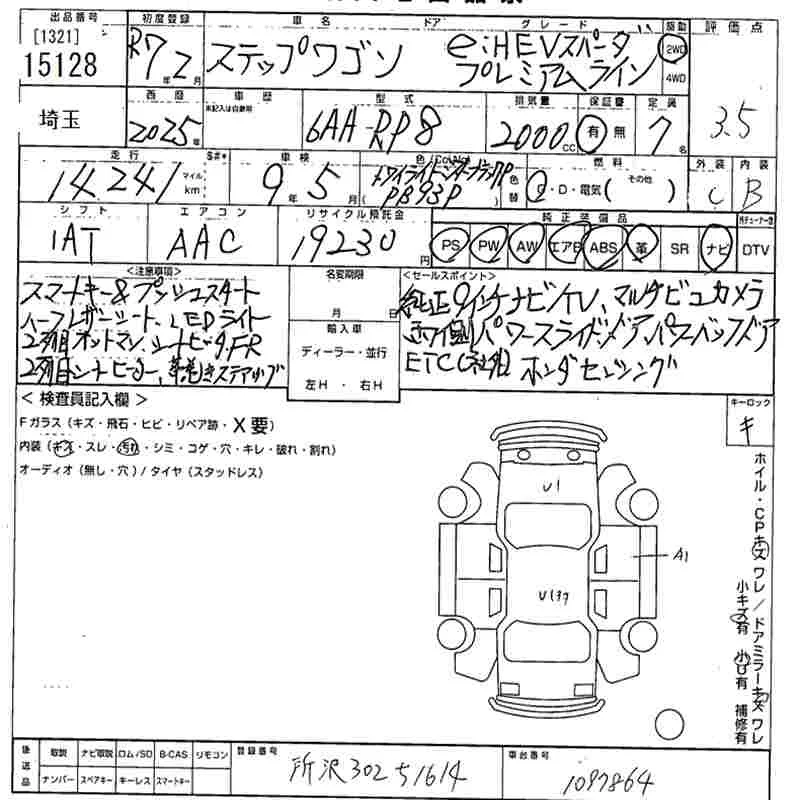 出品番号 初度登録 車名 ドア グレード 駆動 評価点
[1321]
15128
R7年2月 ステップワゴン e:HEVスパーダ
プレミアムライン
2WD
4WD
3.5
埼玉
西暦 車歴 型式 排気量 保証書 定員
未記入は自家用
2025年 6AA-RP8 2000cc 有 無 7名
走行 S#* 車検 色(Col No) 燃料 外装 内装
14241 マイル km 9年5月
PB93P
色替 G・D・電気( その他 )
C B
シフト エアコン リサイクル預託金 純正装備品
1AT AAC 19230円
PS PW AW エアB ABS 革 SR ナビ DTV
<注意事項> 名変期限 <セールスポイント>
スマートキー&プッシュスタート
ハーフレザーシート、LEDライト
2列目オットマン、シートヒータFR
2列目シートヒーター、革巻きステアリング
月 日
輸入車
ディーラー・並行
左H ・ 右H
純正9インチナビTV、マルチビューカメラ
両側パワースライドドア、パワーバックドア
ETC(社外) ホンダセンシング
<検査員記入欄>
Fガラス(キズ・飛石・ヒビ・リペア跡・X要)
内装(キズ・スレ・汚れ・シミ・コゲ・穴・キレ・破れ・割れ)
オーディオ(無し・穴)/タイヤ(スタッドレス)
キーロック
キ
U1
A1
U137
ホイル・CPキズワレ/ドアミラーキズワレ
小キズ有 小U有 補修有
後送品 取説 ナビ取説 ロム/SD B-CAS リモコン
ナンバー スペアキー キーレス スマートキー
登録番号 車台番号
所沢302ち1614 1097864